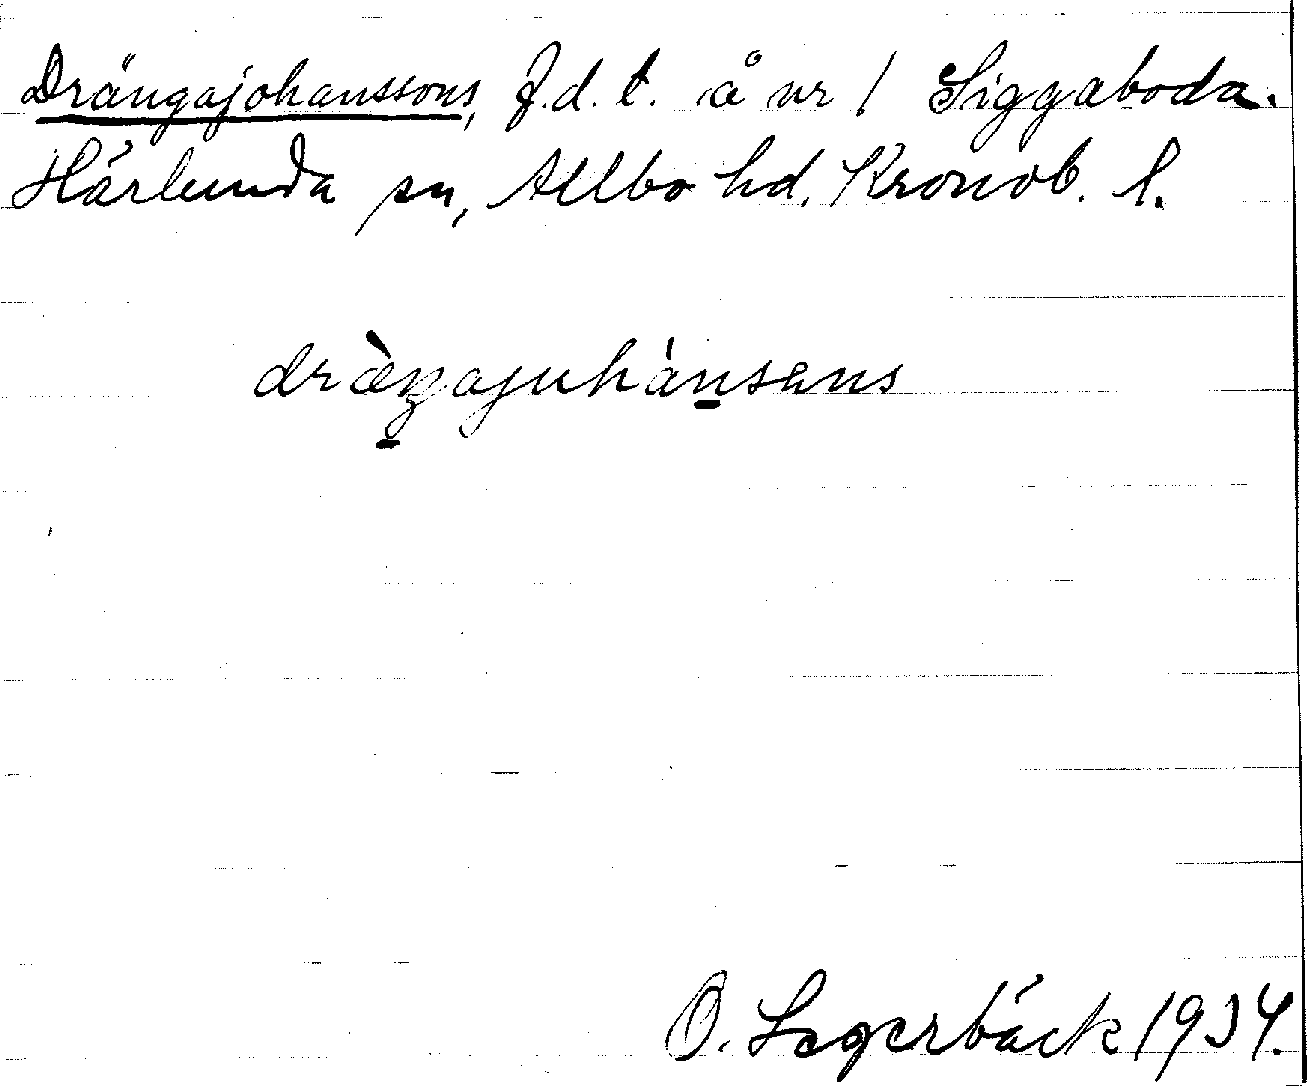 Drängajohanssons, f.d. t. å nr 1 Siggaboda.
Härlunda sn, Allbo hd, Kronob. l.
dræ̀ŋajuhánsens
O. Lagerbäck 1934.